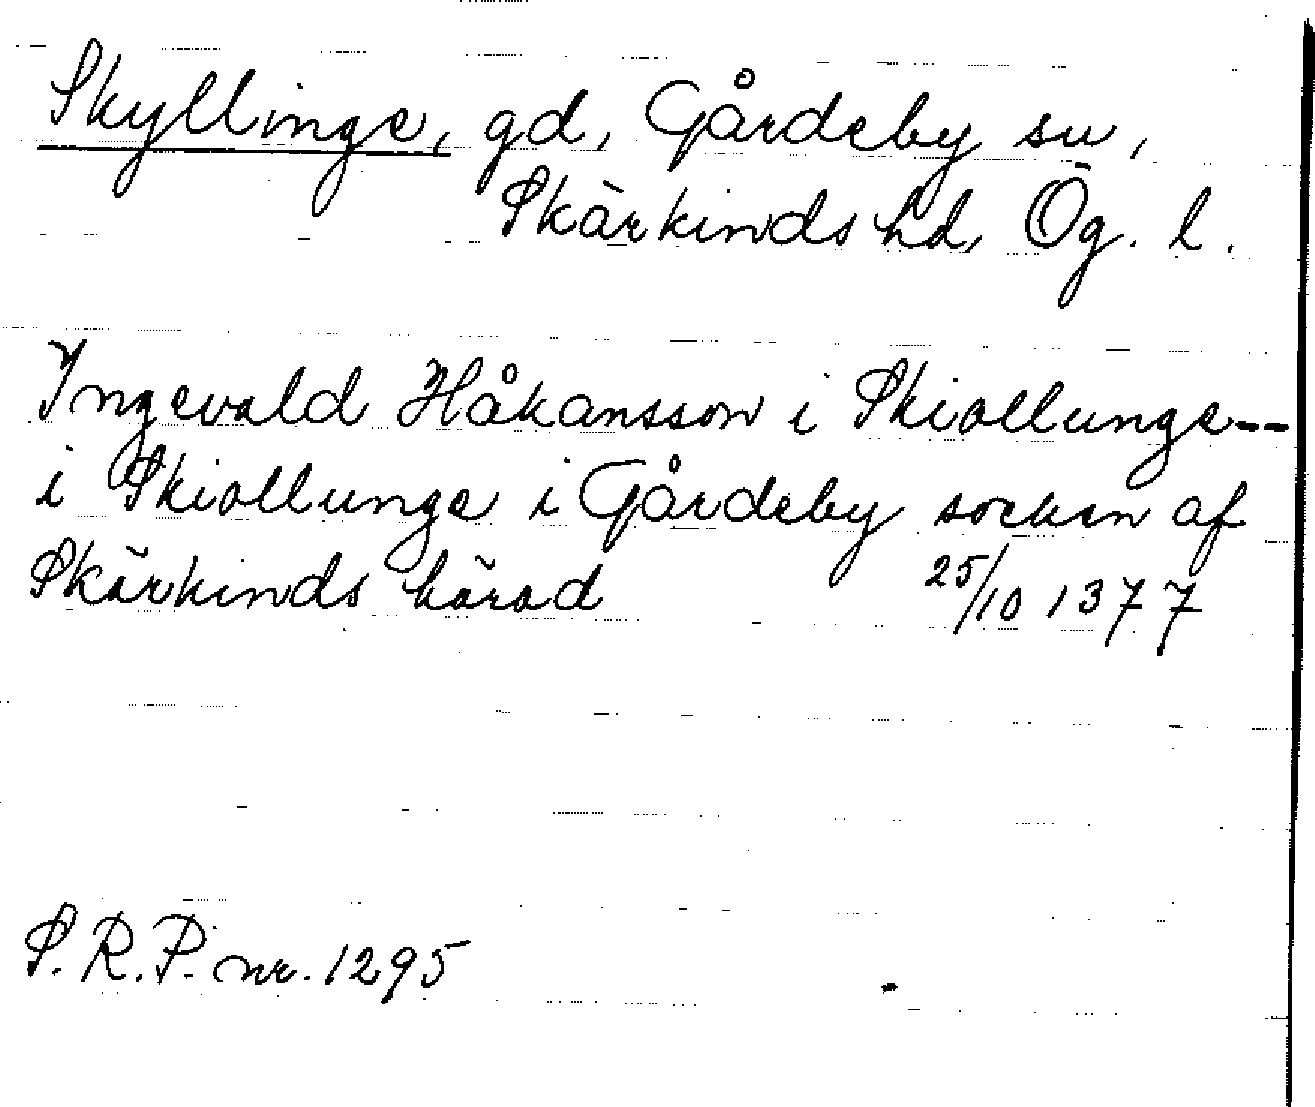 Skyllinge, gd, Gårdeby sn,
Skärkinds hd, Ög. l.
Ingevald Håkansson i Skiallunge--
i Skiallunge i Gårdeby socken af
Skärkinds härad 25/10 1377
S.R.P. nr. 1295